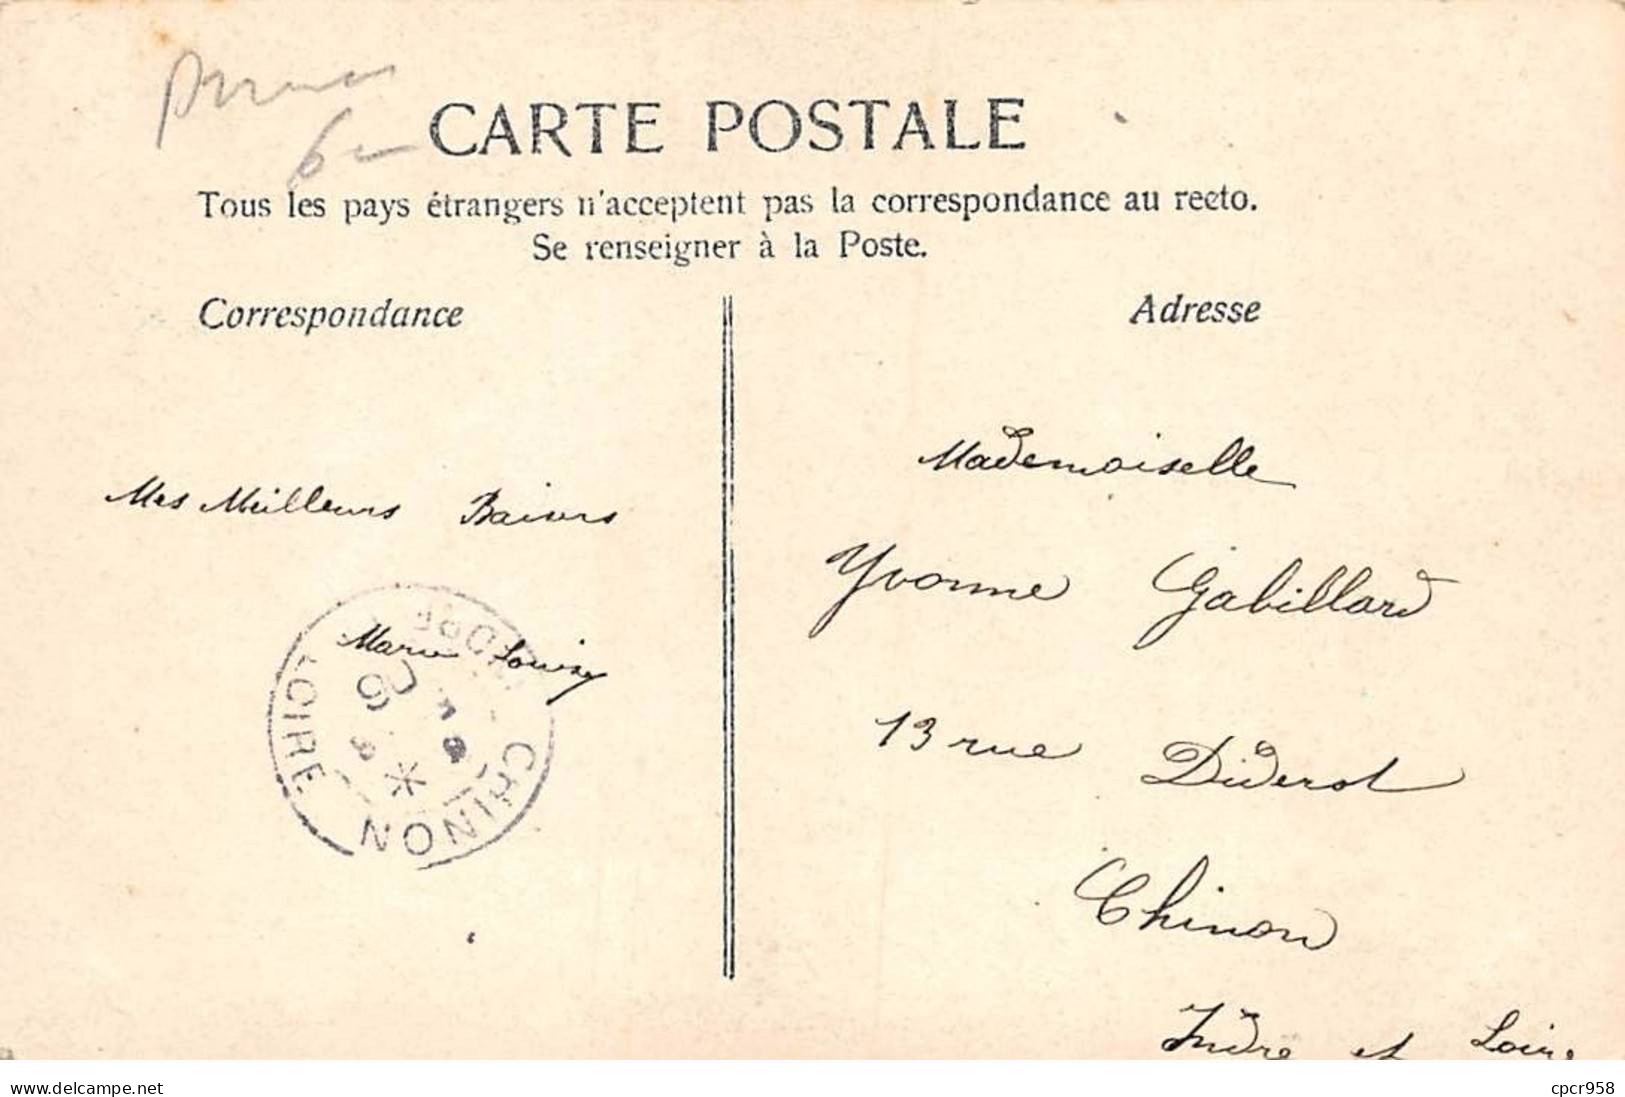 CARTE POSTALE
Tous les pays étrangers n'acceptent pas la correspondance au recto.
Se renseigner à la Poste.
Correspondance
Adresse
Mes Meilleurs Baisers
Marie Louise
Mademoiselle
Yvonne Gabillard
13 rue Diderot
Chinon
Indre et Loire
CHINON
LOIRE
www.delcampe.net
cpcr958